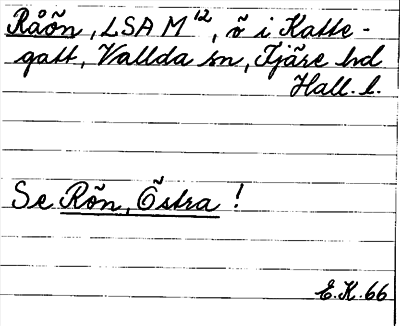 Råön, LSA M¹², ö i Katte-
gatt, Vallda sn, Fjäre hd
Hall. l.
Se Rön, Östra !
E.K. 66